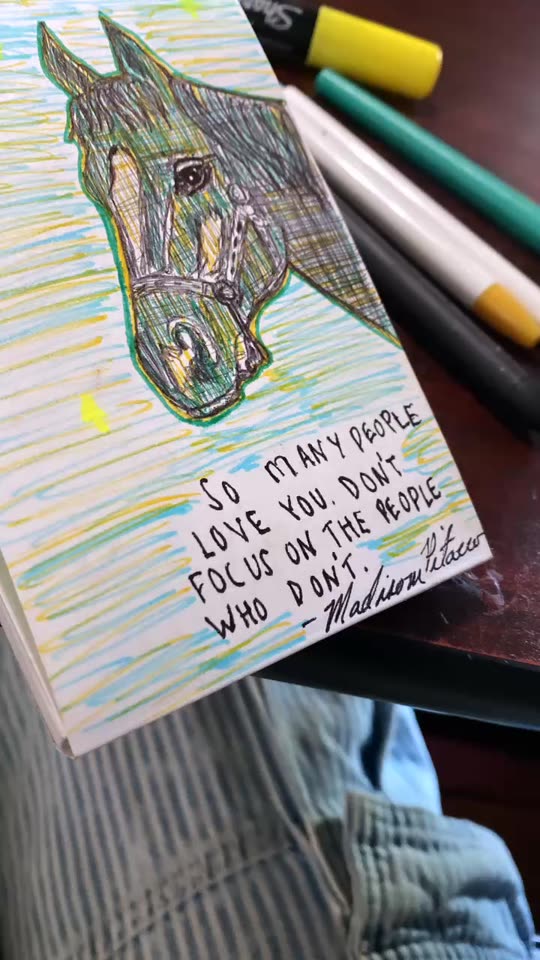 Sharp
SO MANY PEOPLE
LOVE YOU. DON'T
FOCUS ON THE PEOPLE
WHO DON'T.
- Madison Pitacco